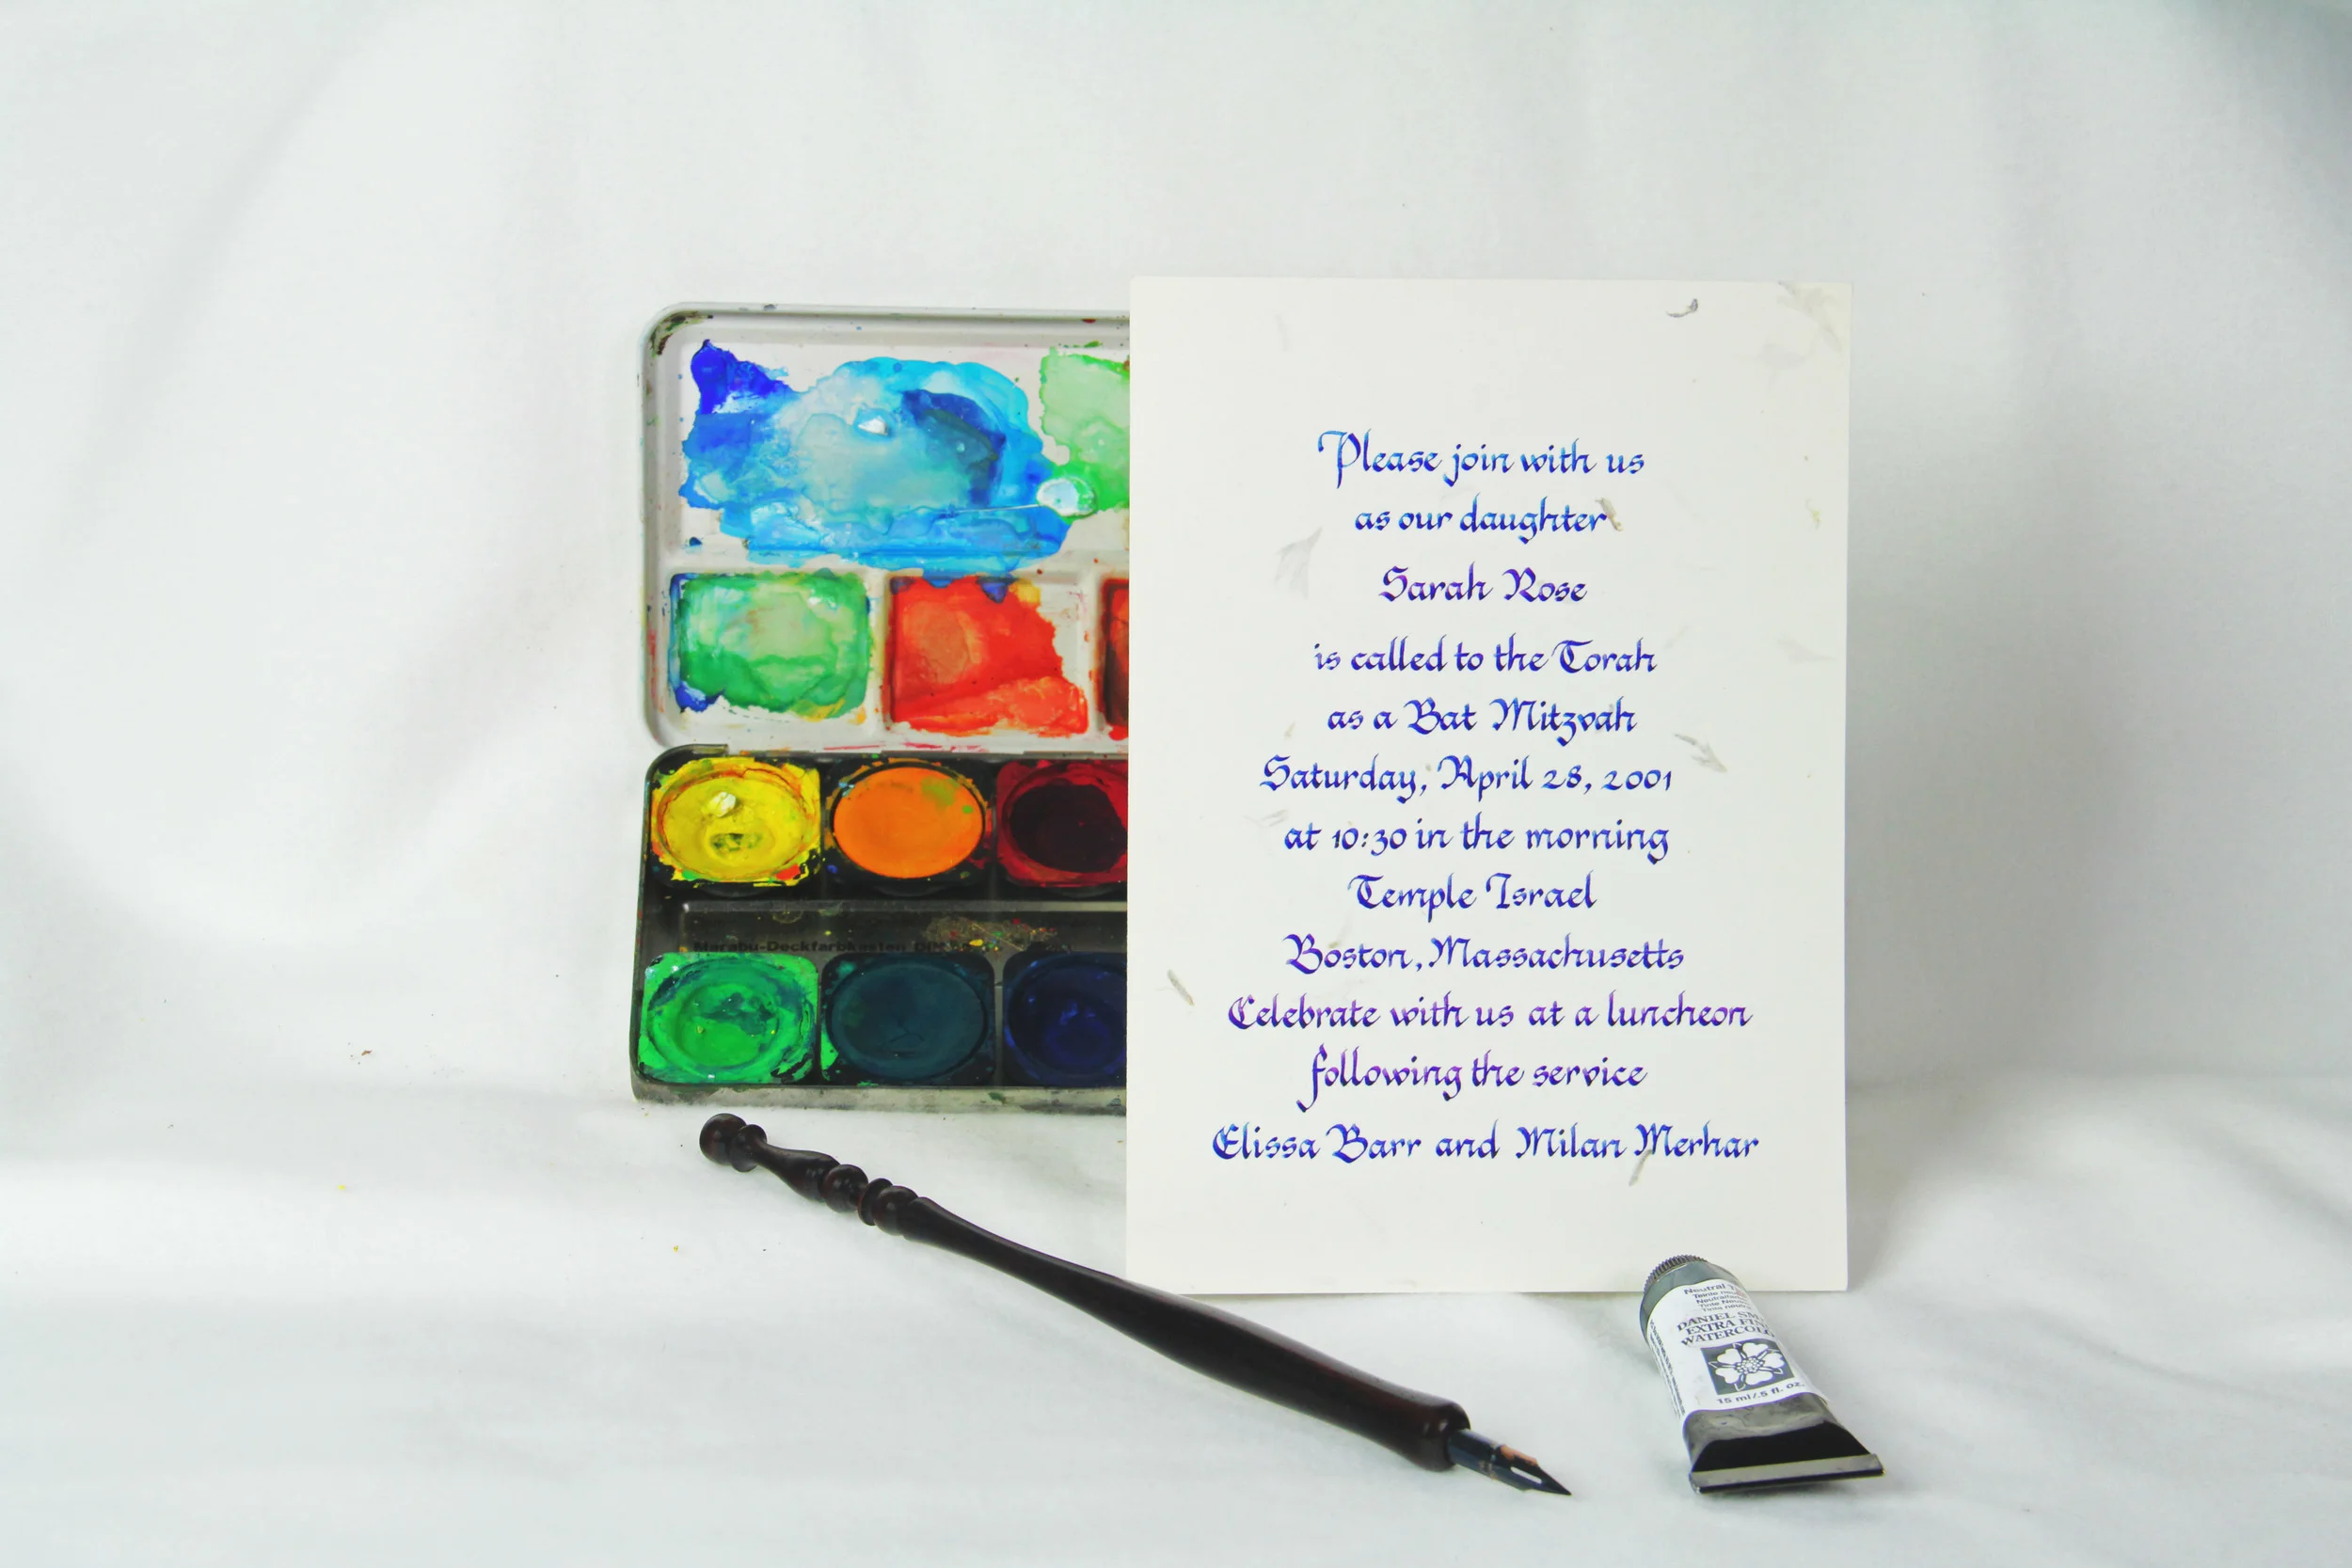 Please join with us
as our daughter
Sarah Rose
is called to the Torah
as a Bat Mitzvah
Saturday, April 28, 2001
at 10:30 in the morning
Temple Israel
Boston, Massachusetts
Celebrate with us at a luncheon
following the service
Elissa Barr and Milan Merhar
Marabu-Deckfarbkasten
Neutral
DANIEL
EXTRA
15 ml/.5 fl. oz.